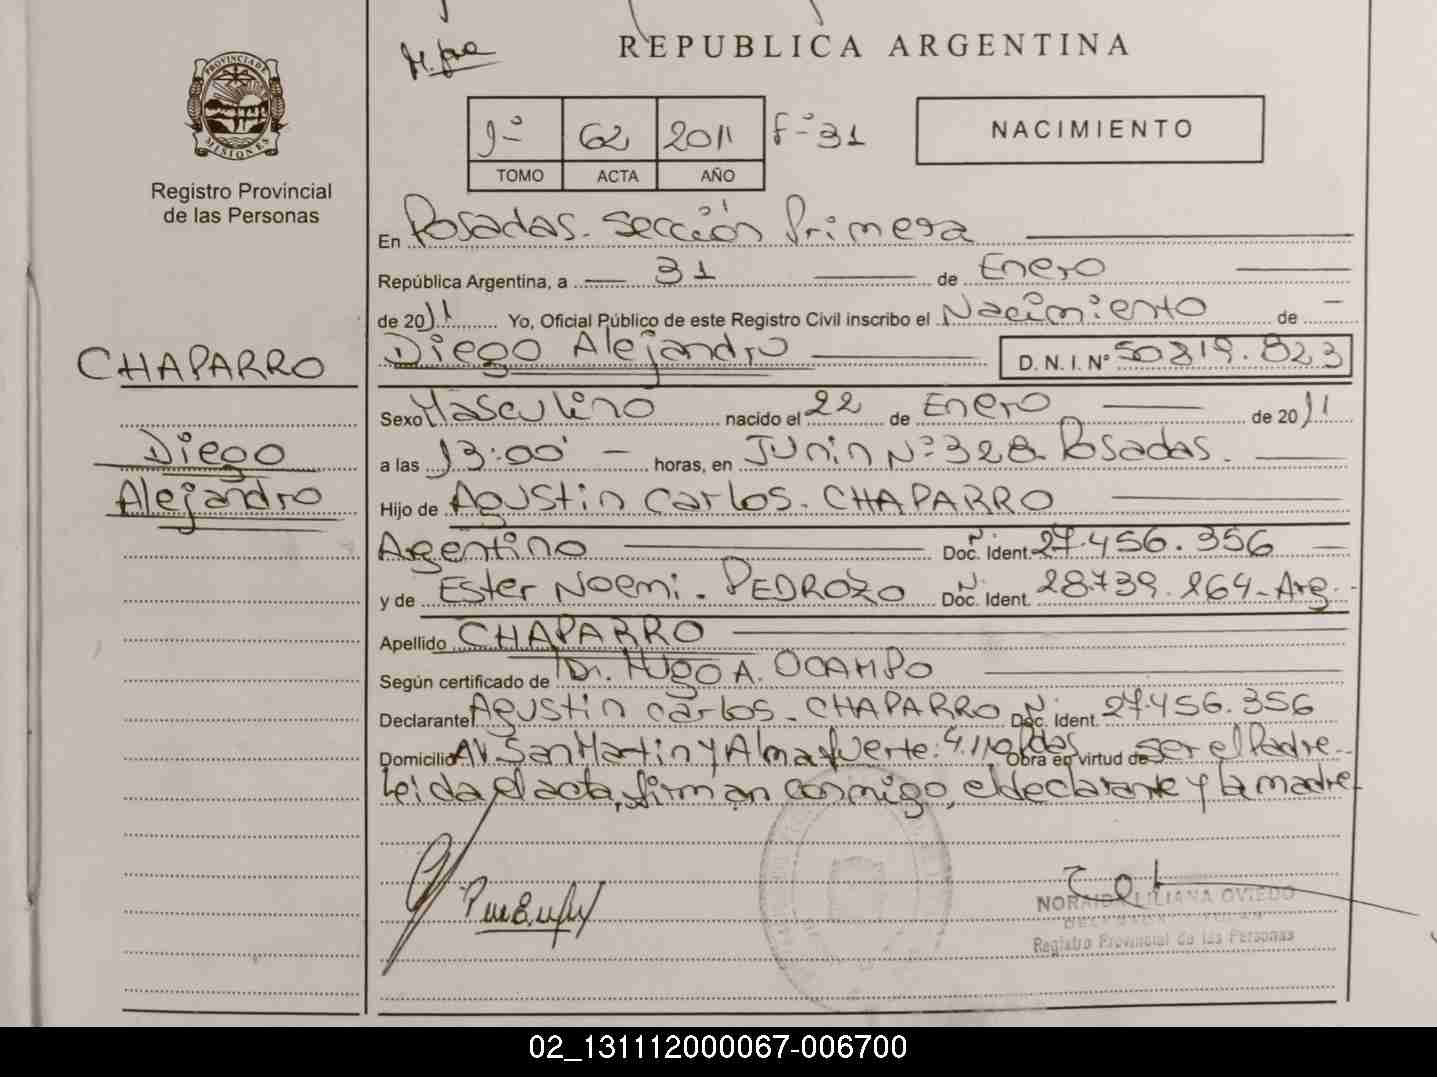 REPUBLICA ARGENTINA
PROVINCIA DE
MISIONES
Registro Provincial
de las Personas
1º 62 2011 Fº 31
TOMO ACTA AÑO
NACIMIENTO
En Posadas. Sección Primera
República Argentina, a 31 de Enero
de 2011 Yo, Oficial Público de este Registro Civil inscribo el Nacimiento de
Diego Alejandro D. N. I. Nº 50.819.823
CHAPARRO
Diego
Alejandro
Sexo Masculino nacido el 22 de Enero de 2011
a las 13:00' horas, en Junin Nº 328 Posadas.
Hijo de Agustin Carlos. CHAPARRO
Argentino Doc. Ident. 27.456.356
y de Ester Noemi. PEDROZO Doc. Ident. 28.739.264 - Arg.
Apellido CHAPARRO
Según certificado de Dr. Hugo A. OCAMPO
Declarante Agustin Carlos. CHAPARRO Doc. Ident. 27.456.356
Domicilio Av. San Martin y Almafuerte. Pdas Obra en virtud de ser el Padre
Leida el acta, firman conmigo, el declarante y la madre
NORAIDA LILIANA OVIEDO
Registro Provincial de las Personas
02_131112000067-006700